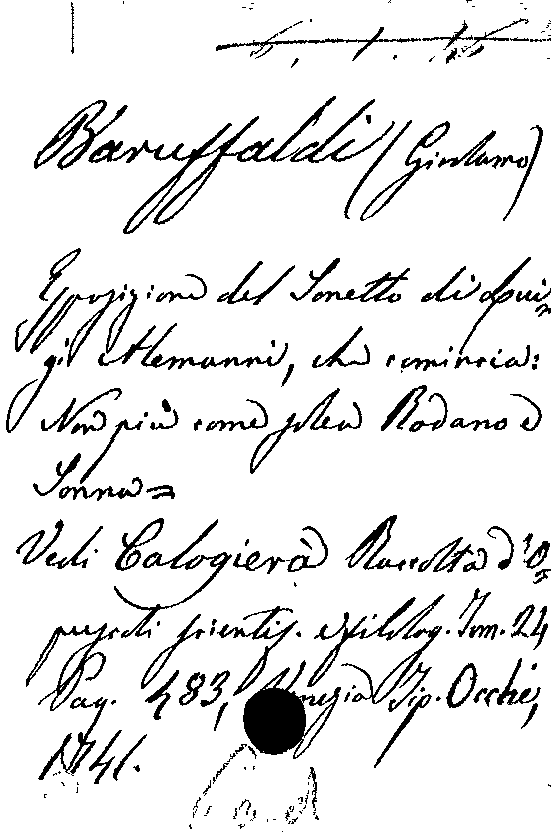 Baruffaldi (Girolamo)
Esposizione del Sonetto di Lui=
gi Alemanni, che comincia:
Non più come solea Rodano e
Sonna =
Vedi Calogierà Raccolta d'O=
puscoli scientif. e filolog. Tom. 24
Pag. 483, Venezia Tip. Occhi,
1741.